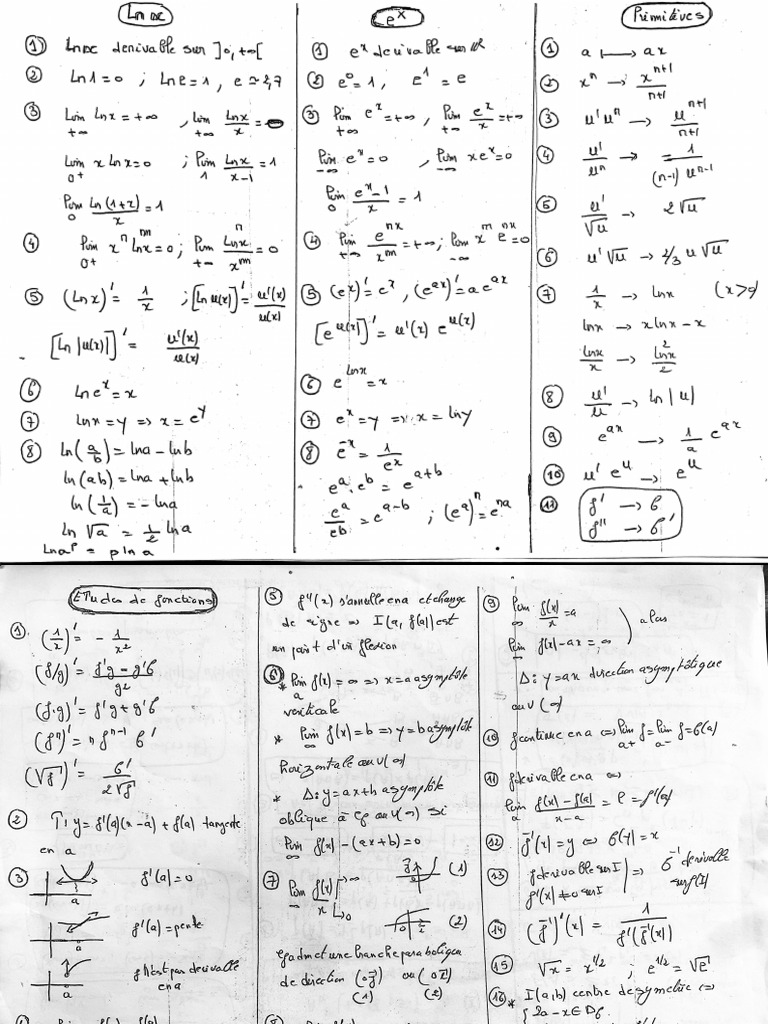 Ln x
① Lnx derivable sur ]0, +∞[
② Ln1 = 0 ; Ln e = 1, e ≃ 2,7
③ Lim Lnx = +∞ , Lim Lnx/x =
+∞ +∞
Lim x Lnx = 0 ; Lim Lnx/(x-1) = 1
0⁺ 1
Lim Ln(1+x)/x = 1
0
④ Lim xⁿ Lnᵐx = 0 ; Lim Lnⁿx/xᵐ = 0
0⁺ +∞
⑤ (Lnx)' = 1/x ; [Ln u(x)]' = u'(x)/u(x)
[Ln |u(x)|]' = u'(x)/u(x)
⑥ Ln eˣ = x
⑦ Lnx = y => x = eʸ
⑧ Ln(a/b) = Lna - Lnb
Ln(ab) = Lna + Lnb
Ln(1/a) = - Lna
Ln √a = 1/2 Ln a
Lnaᴾ = p Ln a
eˣ
① eˣ derivable sur ℝ
② e⁰ = 1, e¹ = e
③ Lim eˣ = +∞, Lim eˣ/x = +∞
+∞ +∞
Lim eˣ = 0 , Lim xeˣ = 0
-∞ -∞
Lim (eˣ-1)/x = 1
0
④ Lim eⁿˣ/xᵐ = +∞; Lim xᵐ eⁿˣ = 0
+∞ -∞
⑤ (eˣ)' = eˣ, (eᵃˣ)' = a eᵃˣ
[e^u(x)]' = u'(x) e^u(x)
⑥ e^Lnx = x
⑦ eˣ = y => x = Lny
⑧ e⁻ˣ = 1/eˣ
eᵃ . eᵇ = eᵃ⁺ᵇ
eᵃ/eᵇ = eᵃ⁻ᵇ ; (eᵃ)ⁿ = eⁿᵃ
Primitives
① a ⟼ ax
② xⁿ → xⁿ⁺¹/(n+1)
③ u'uⁿ → uⁿ⁺¹/(n+1)
④ u'/uⁿ → -1/((n-1) uⁿ⁻¹)
⑤ u'/√u → 2√u
⑥ u'√u → 2/3 u√u
⑦ 1/x → Lnx (x>0)
Lnx → x Lnx - x
Lnx/x → Ln²x/2
⑧ u'/u → Ln |u|
⑨ eᵃˣ → 1/a eᵃˣ
⑩ u' eᵘ → eᵘ
⑪ f' → f
f'' → f'
Etudes de fonctions
① (1/x)' = - 1/x²
(f/g)' = (f'g - g'f)/g²
(f.g)' = f'g + g'f
(fⁿ)' = n fⁿ⁻¹ f'
(√f)' = f'/(2√f)
② T: y = f'(a)(x-a) + f(a) tangente
en a
③ f'(a) = 0
a
f'(a) = pente
a
f n'est pas derivable
en a
a
⑤ f''(x) s'annulle en a et change
de signe ⇔ I(a, f(a)) est
un point d'inflexion
⑥ * Lim f(x) = ∞ => x = a asymptôte
a
verticale
* Lim f(x) = b => y = b asymptôte
∞
horizontale au v(∞)
* Δ: y = ax+b asymptôte
oblique à Cf au v(∞) si
Lim f(x) - (ax+b) = 0
∞
⑦ Lim f(x)/x → ∞ (1)
∞ → 0 (2)
Cf admet une branche parabolique
de direction (oj) ou (oi)
(1) (2)
⑨ Lim f(x)/x = a
∞
Lim f(x) - ax = ∞ } alors
∞
Δ: y = ax direction asymptôtique
au v(∞)
⑩ f continue en a ⇔ Lim f = Lim f = f(a)
a⁺ a⁻
⑪ f derivable en a ⇔
Lim (f(x) - f(a))/(x-a) = l = f'(a)
a
⑫ f⁻¹(x) = y ⇔ f(y) = x
⑬ f derivable sur I
f'(x) ≠ 0 sur I } => f⁻¹ derivable
sur f(I)
⑭ (f⁻¹)'(x) = 1/f'(f⁻¹(x))
⑮ √x = x^1/2 ; e^1/2 = √e
⑯ * I(a,b) centre de symetrie ⇔
{ 2a - x ∈ Df